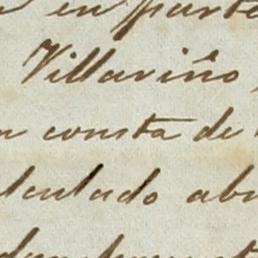 en parte
Villariño,
consta de
lculado ab